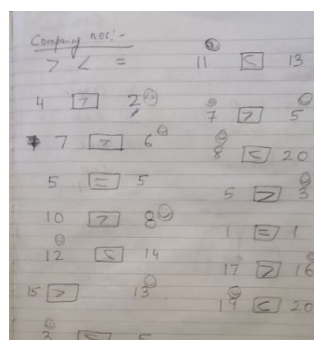 Company nos:-
> < =
4 > 2
7 > 6
5 = 5
10 > 8
12 < 14
15 > 13
3 < 5
11 < 13
7 > 5
8 < 20
5 > 3
1 = 1
17 > 16
19 < 20